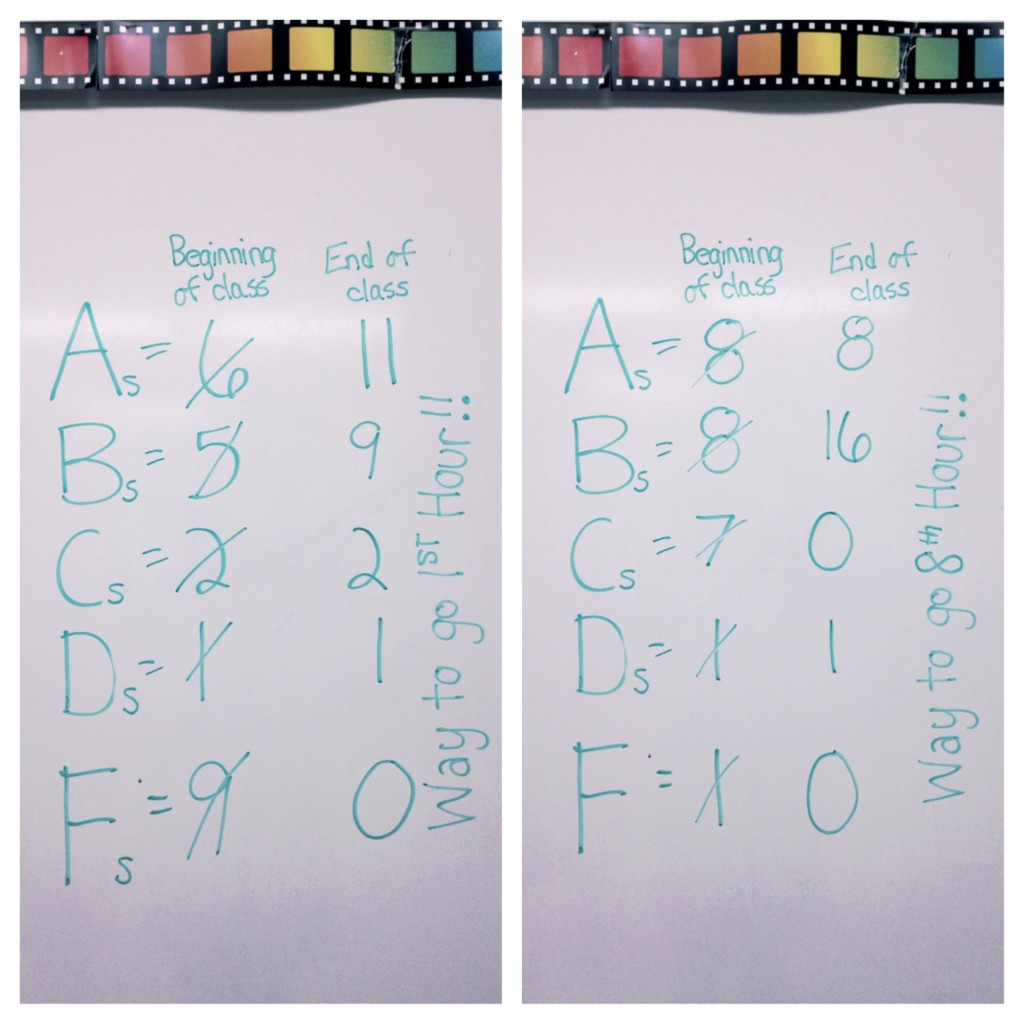 Beginning of class End of class
As = 6 11
Bs = 5 9
Cs = 2 2
Ds = 1 1
Fs = 9 0
Way to go 1st Hour!!
Beginning of class End of class
As = 8 8
Bs = 8 16
Cs = 7 0
Ds = 1 1
F = 1 0
Way to go 8th Hour!!